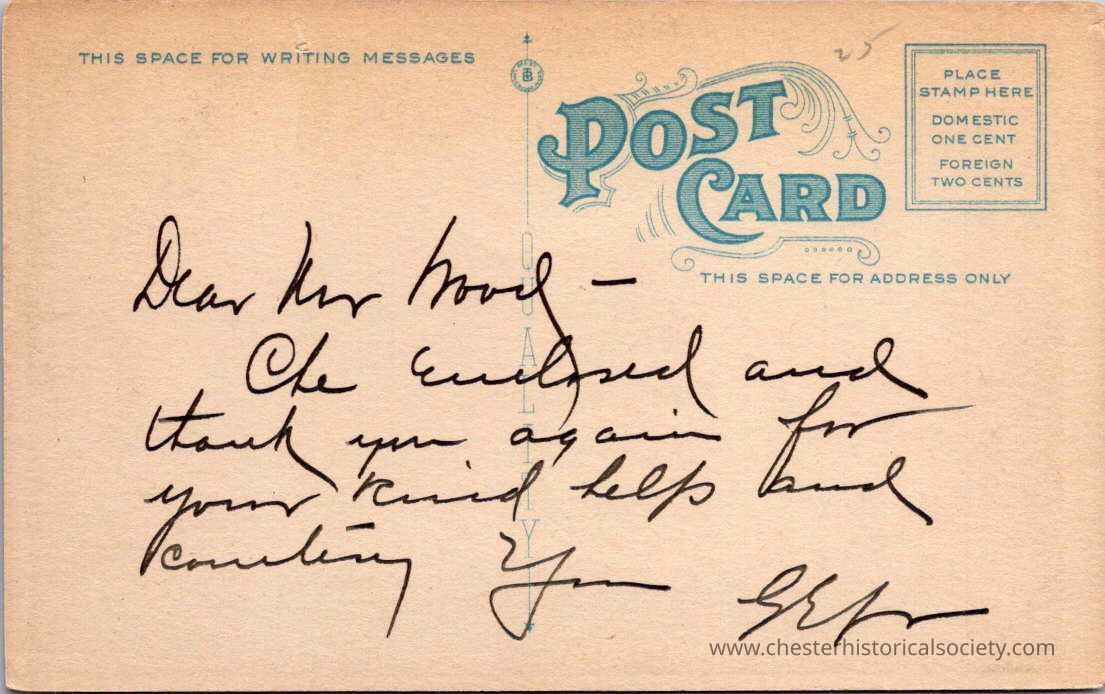 THIS SPACE FOR WRITING MESSAGES
25
PLACE
STAMP HERE
DOMESTIC
ONE CENT
FOREIGN
TWO CENTS
POST
CARD
THIS SPACE FOR ADDRESS ONLY
QUALITY
Dear Mr Wood –
The enclosed and
thank you again for
your kind help and
courtesy
www.chesterhistoricalsociety.com